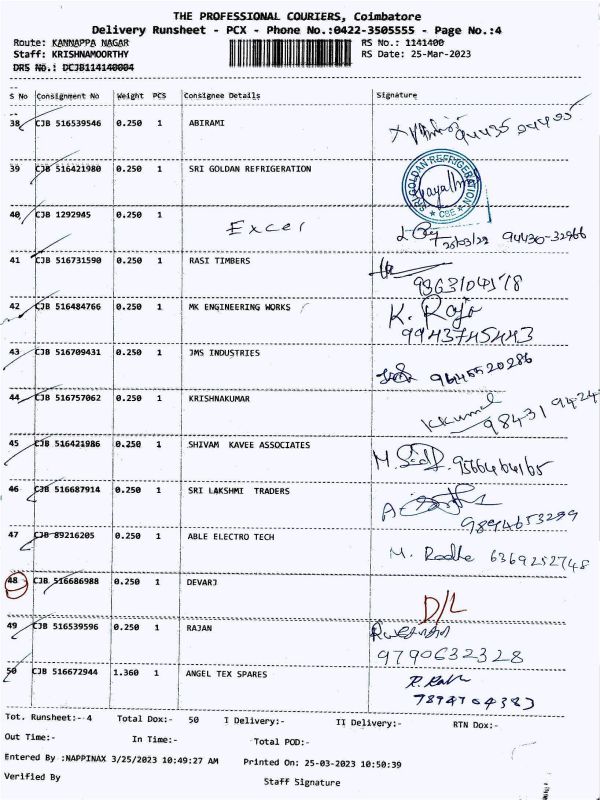 THE PROFESSIONAL COURIERS, Coimbatore
Delivery Runsheet - PCX - Phone No.:0422-3505555 - Page No.:4
Route: KANNAPPA NAGAR RS No.: 1141400
Staff: KRISHNAMOORTHY RS Date: 25-Mar-2023
DRS No.: DCJB114140004
S No Consignment No Weight PCS Consignee Details Signature
38 CJB 516539546 0.250 1 ABIRAMI
39 CJB 516421980 0.250 1 SRI GOLDAN REFRIGERATION
SRI GOLDAN REFRIGERATION * CBE *
40 CJB 1292945 0.250 1 Excel 94430-32966
41 CJB 516731590 0.250 1 RASI TIMBERS 9363104178
42 CJB 516484766 0.250 1 MK ENGINEERING WORKS K. Raja
9943745443
43 CJB 516709431 0.250 1 JMS INDUSTRIES 9645520286
44 CJB 516757062 0.250 1 KRISHNAKUMAR K Kumal 98431 9424
45 CJB 516421986 0.250 1 SHIVAM KAVEE ASSOCIATES
46 CJB 516687914 0.250 1 SRI LAKSHMI TRADERS
9894653299
47 CJB 89216205 0.250 1 ABLE ELECTRO TECH M. Radhe 6369252748
48 CJB 516686988 0.250 1 DEVARJ D/L
49 CJB 516539596 0.250 1 RAJAN
9790632328
50 CJB 516672944 1.360 1 ANGEL TEX SPARES
7894704383
Tot. Runsheet:- 4 Total Dox:- 50 I Delivery:- II Delivery:- RTN Dox:-
Out Time:- In Time:- Total POD:-
Entered By :NAPPINAX 3/25/2023 10:49:27 AM Printed On: 25-03-2023 10:50:39
Verified By Staff Signature